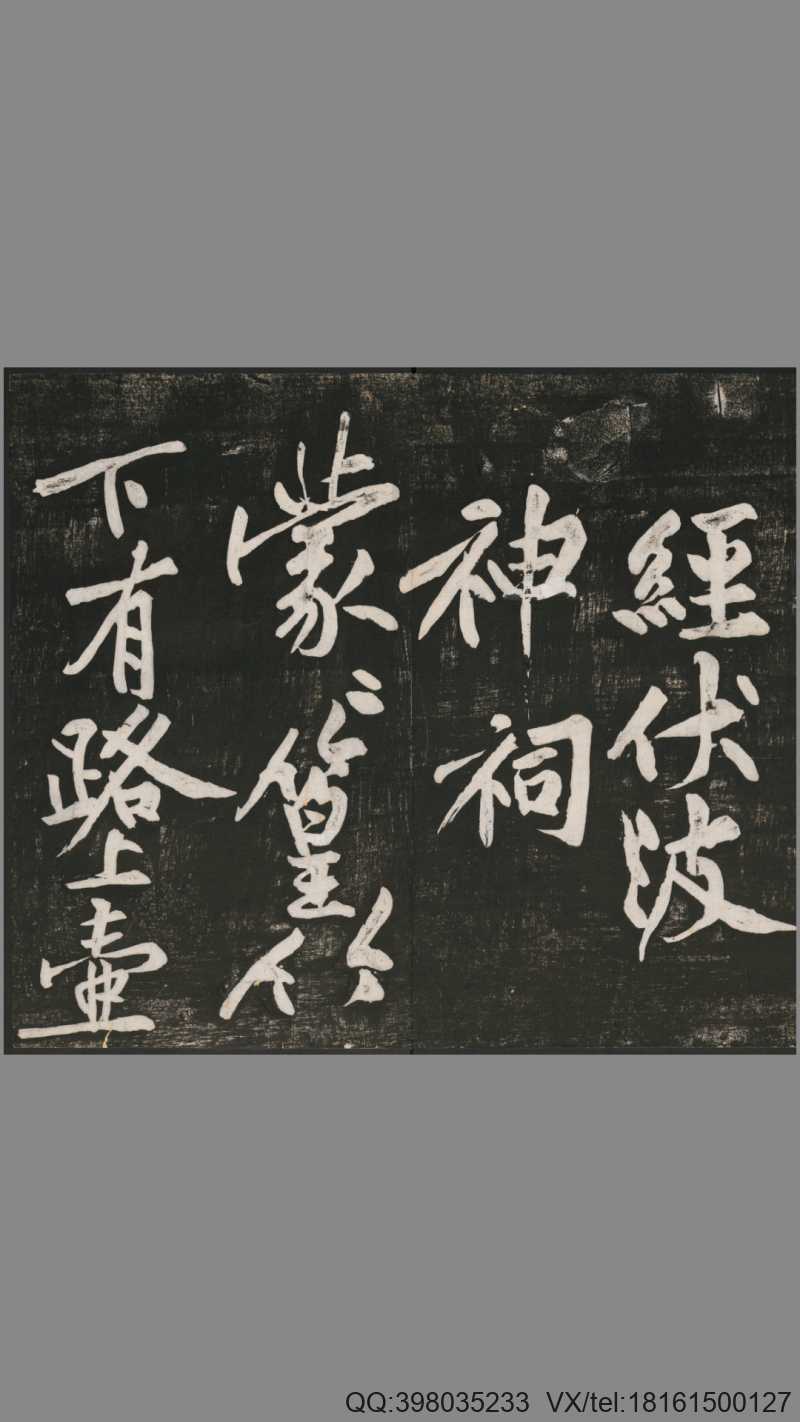 經伏波
神祠
蒙〻篁竹
下有路上壺
QQ:398035233 VX/tel:18161500127